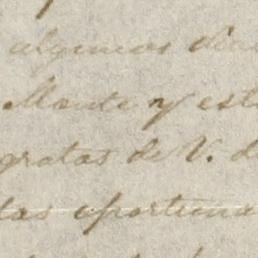 algunos dias
Monte y est
gratas de V. d
das oportuna